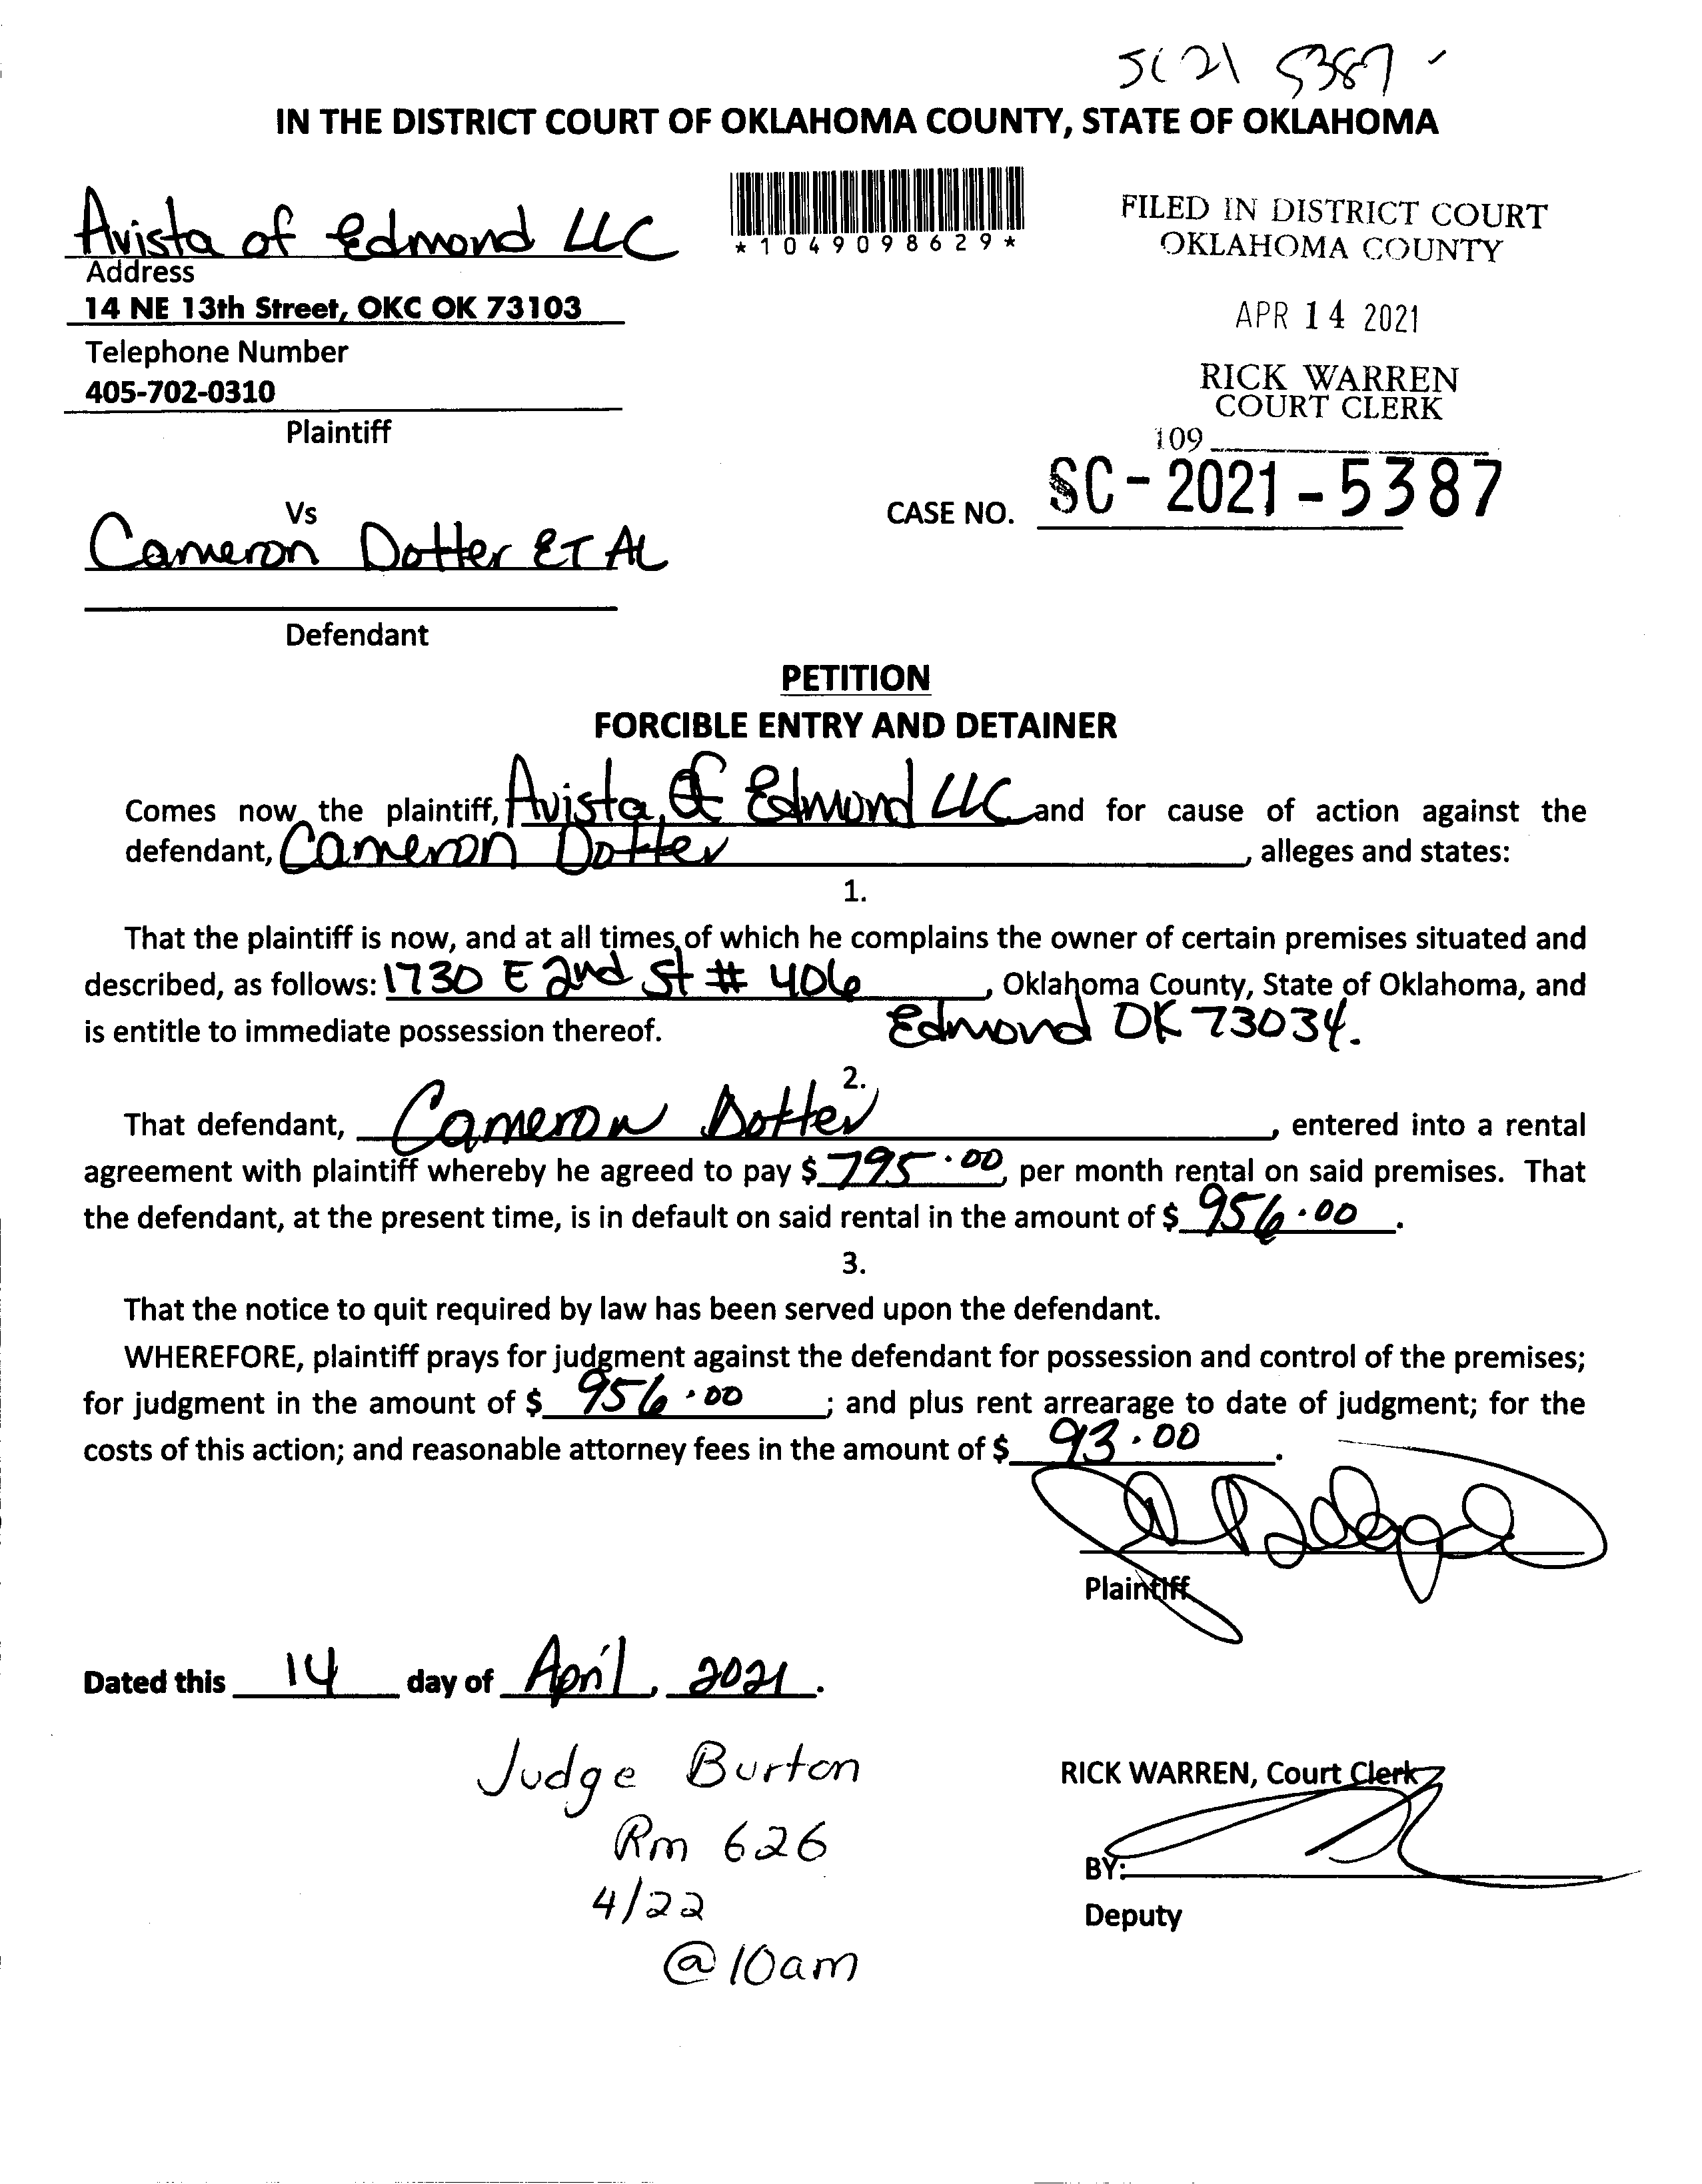 SC 21 5387
IN THE DISTRICT COURT OF OKLAHOMA COUNTY, STATE OF OKLAHOMA
Avista of Edmond LLC
Address
14 NE 13th Street, OKC OK 73103
Telephone Number
405-702-0310
Plaintiff
*1049098629*
FILED IN DISTRICT COURT
OKLAHOMA COUNTY
APR 14 2021
RICK WARREN
COURT CLERK
109
Vs
CASE NO. SC-2021-5387
Cameron Dotter ET AL
Defendant
PETITION
FORCIBLE ENTRY AND DETAINER
Comes now the plaintiff, Avista of Edmond LLC and for cause of action against the
defendant, Cameron Dotter, alleges and states:
1.
That the plaintiff is now, and at all times of which he complains the owner of certain premises situated and
described, as follows: 1730 E 2nd St # 406, Oklahoma County, State of Oklahoma, and
is entitle to immediate possession thereof. Edmond OK 73034.
2.
That defendant, Cameron Dotter, entered into a rental
agreement with plaintiff whereby he agreed to pay $ 795.00, per month rental on said premises. That
the defendant, at the present time, is in default on said rental in the amount of $ 956.00.
3.
That the notice to quit required by law has been served upon the defendant.
WHEREFORE, plaintiff prays for judgment against the defendant for possession and control of the premises;
for judgment in the amount of $ 956.00; and plus rent arrearage to date of judgment; for the
costs of this action; and reasonable attorney fees in the amount of $ 93.00.
Plaintiff
Dated this 14 day of April, 2021.
Judge Burton
Rm 626
4/22
@10am
RICK WARREN, Court Clerk
BY:
Deputy